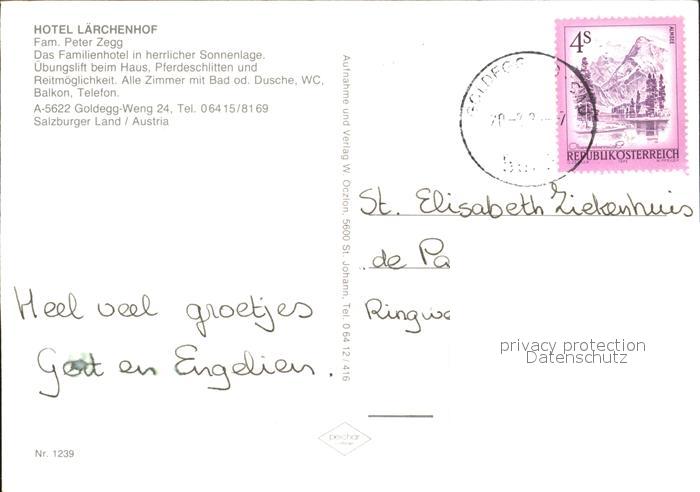 HOTEL LÄRCHENHOF
Fam. Peter Zegg
Das Familienhotel in herrlicher Sonnenlage.
Übungslift beim Haus, Pferdeschlitten und
Reitmöglichkeit. Alle Zimmer mit Bad od. Dusche, WC,
Balkon, Telefon.
A-5622 Goldegg-Weng 24, Tel. 06415/8169
Salzburger Land / Austria
Heel veel groetjes
Gert en Engelien.
Nr. 1239
Aufnahme und Verlag W. Oczlon, 5600 St. Johann, Tel. 06412/416
4S
ALMSEE
REPUBLIK ÖSTERREICH
GOLDEGG
St. Elisabeth Ziekenhuis
de Pa
Ringw
privacy protection
Datenschutz